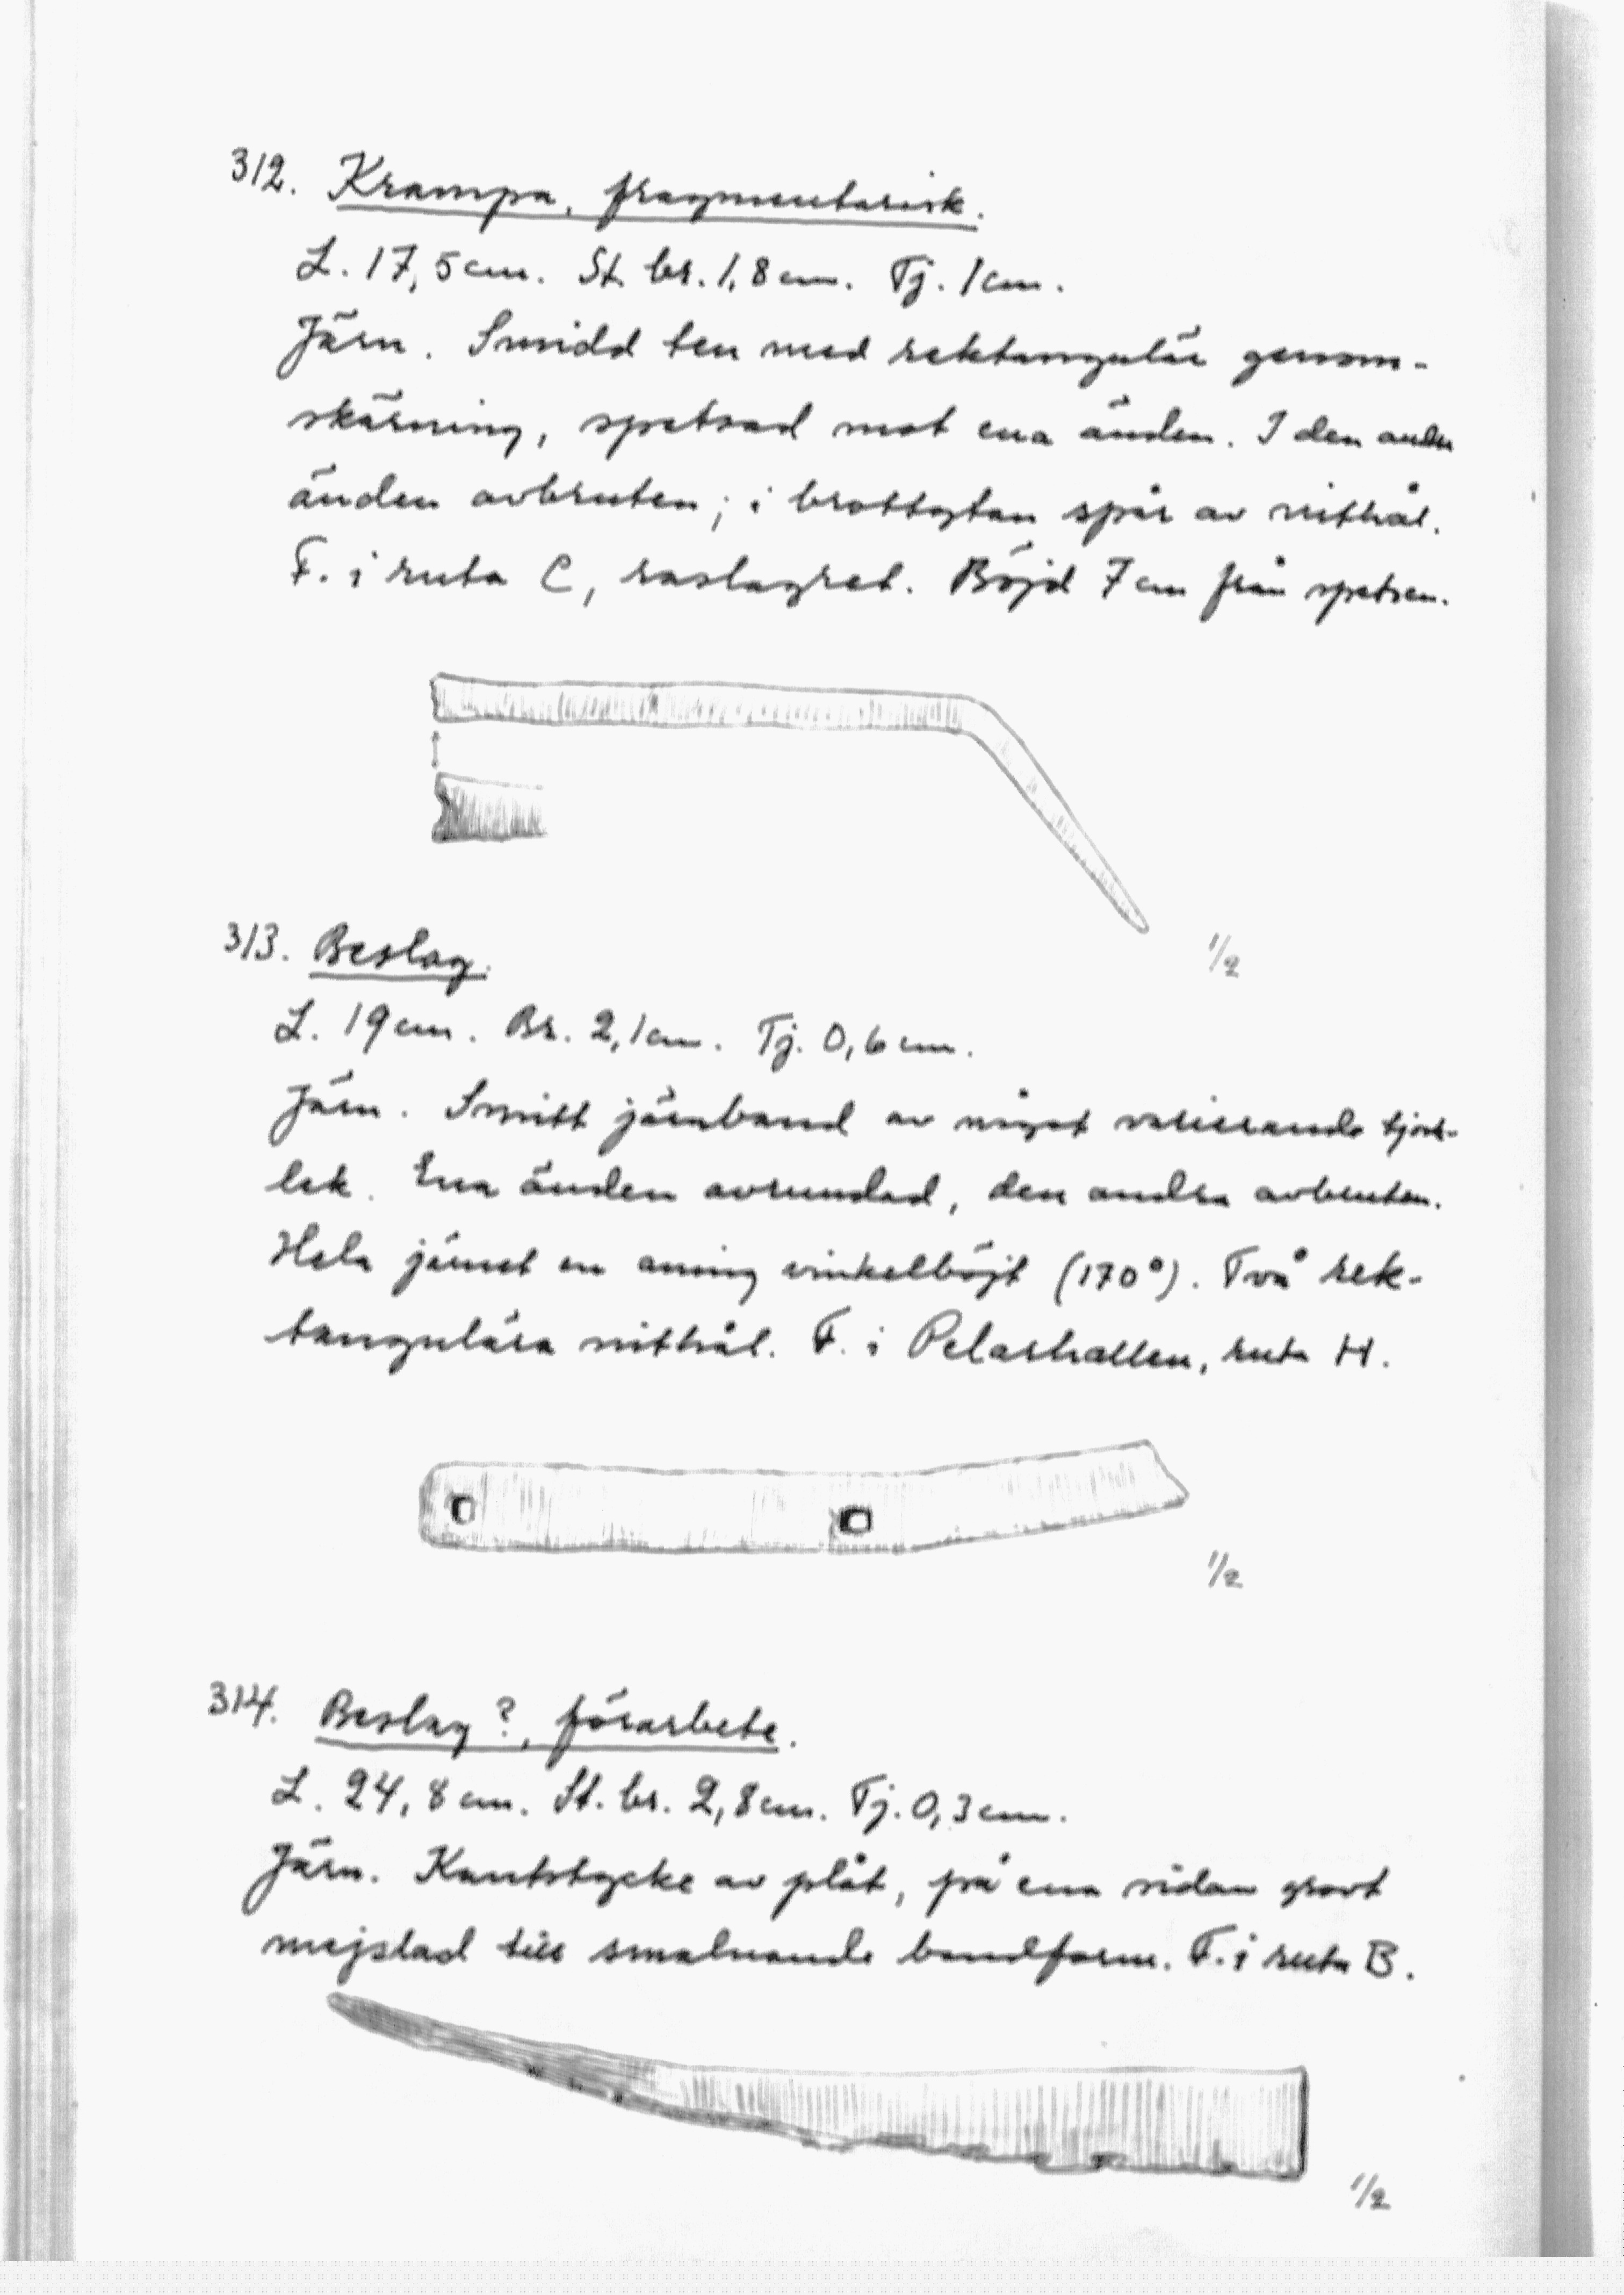 312. Krampa, fragmentarisk.
L. 17,5 cm. St. br. 1,8 cm. Tj. 1 cm.
Järn. Smidd ten med rektangulär genom-
skärning, spetsad mot ena änden. I den andra
änden avbruten; i brottytan spår av nithål.
F. i ruta C, raslagret. Böjd 7 cm från spetsen.
1/2
313. Beslag.
L. 19 cm. Br. 2,1 cm. Tj. 0,6 cm.
Järn. Smitt järnband av något varierande tjock-
lek. Ena änden avrundad, den andra avbruten.
Hela järnet en aning vinkelböjt (170°). Två rek-
tangulära nithål. F. i Pelarhallen, ruta H.
1/2
314. Beslag?, förarbete.
L. 24,8 cm. St. br. 2,8 cm. Tj. 0,3 cm.
Järn. Kantstycke av plåt, på ena sidan grovt
mejslad till smalnande bandform. F. i ruta B.
1/2